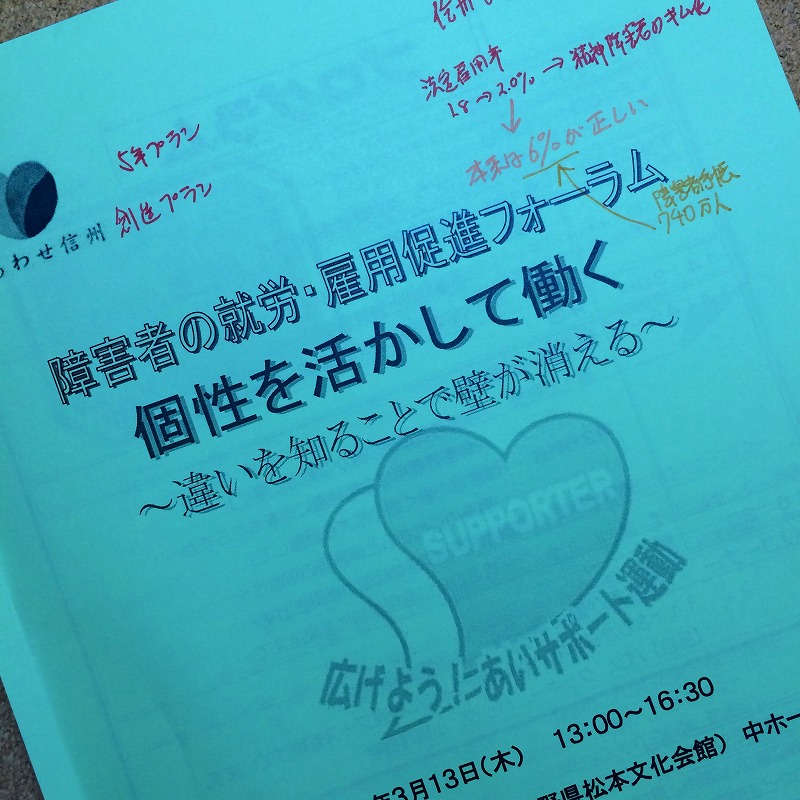 信州
法定雇用率
1.8→2.0%→精神障害者のギム化
本来は6%が正しい
障害者手帳
740万人
5年プラン
創造プラン
あわせ信州
障害者の就労・雇用促進フォーラム
個性を活かして働く
～違いを知ることで壁が消える～
SUPPORTER
広げよう！あいサポート運動
年3月13日(木) 13:00～16:30
野県松本文化会館) 中ホー